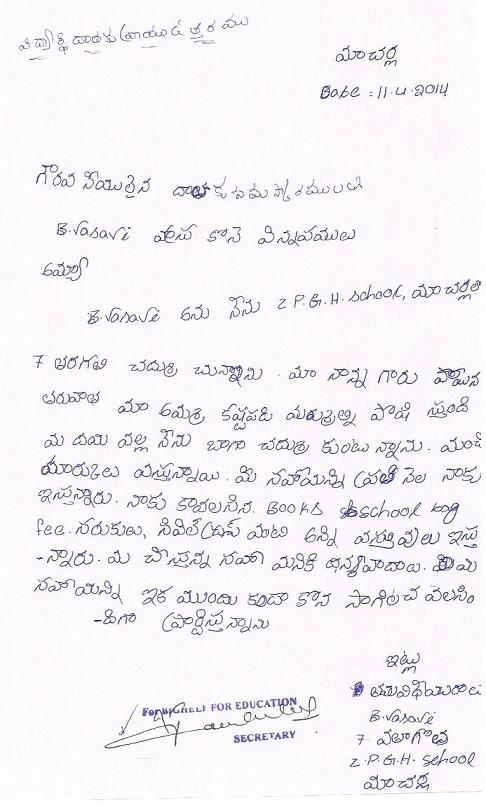 విద్యార్థి దాతకు వ్రాయు ఉత్తరము
మాచర్ల
Date : 11.4.2014
గౌరవనీయులైన దాతకు నమస్కారములు
B.Vasavi వ్రాసు కొనె విన్నపములు
అమ్మా
B.Vasavi అను నేను Z.P.G.H. School, మాచర్లలో
7 తరగతి చదువు చున్నాను. మా నాన్న గారు పోయిన
తరువాత మా అమ్మ కష్టపడి మమ్మల్ని పోషిస్తుంది
మీ దయ వల్ల నేను బాగా చదువు కుంటున్నాను. మంచి
మార్కులు వస్తున్నాయి. మీ సహాయాన్ని ప్రతి నెల నాకు
ఇస్తున్నారు. నాకు కావలసిన Books School bag
fee. సరుకులు, సివిల్ డ్రస్ వంటి అన్ని వస్తువులు ఇస్తు
-న్నారు. మీ చేస్తున్న సహాయానికి ధన్యవాదాలు. మీ
సహాయాన్ని ఇక ముందు కుడా కొన సాగించ వలసిం
-దిగా ప్రార్థిస్తున్నాను
ఇట్లు
తమ విధేయురాలు
B.Vasavi
7. వ తరగతి
Z.P.G.H. School
మాచర్ల
FOR EDUCATION
SECRETARY